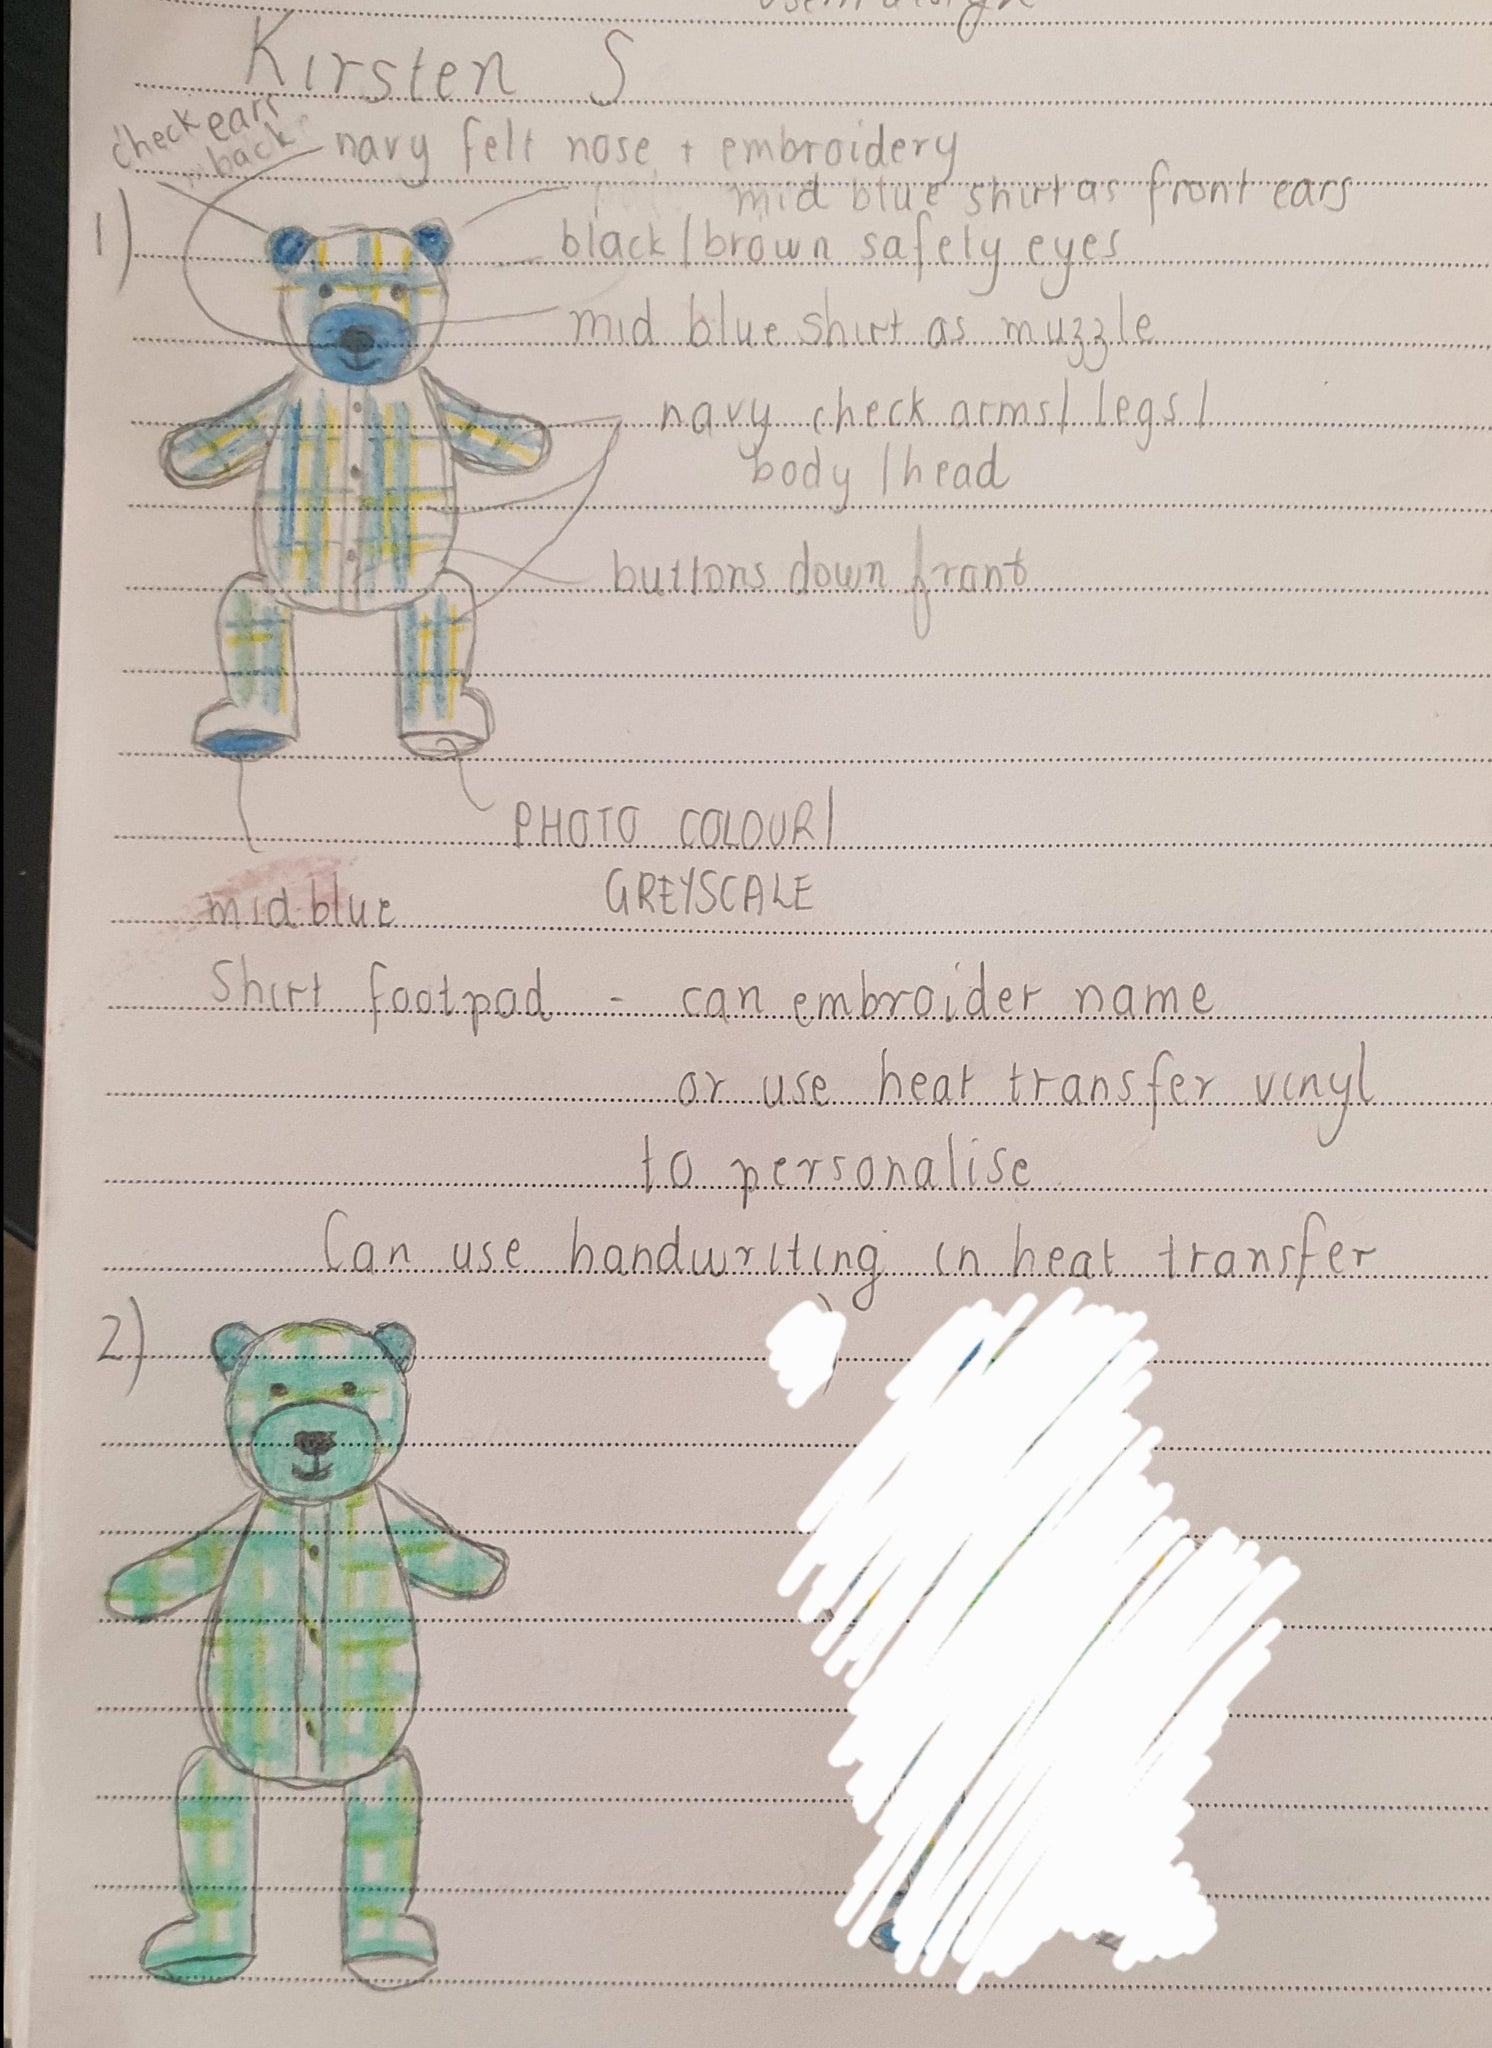 Kirsten S
check ears
back
navy felt nose + embroidery
mid blue shirt as front ears
1)
black/brown safety eyes
mid blue shirt as muzzle
navy check arms/legs/
body/head
buttons down front
PHOTO COLOUR/
GREYSCALE
mid blue
Shirt footpad - can embroider name
or use heat transfer vinyl
to personalise
Can use handwriting in heat transfer
2)